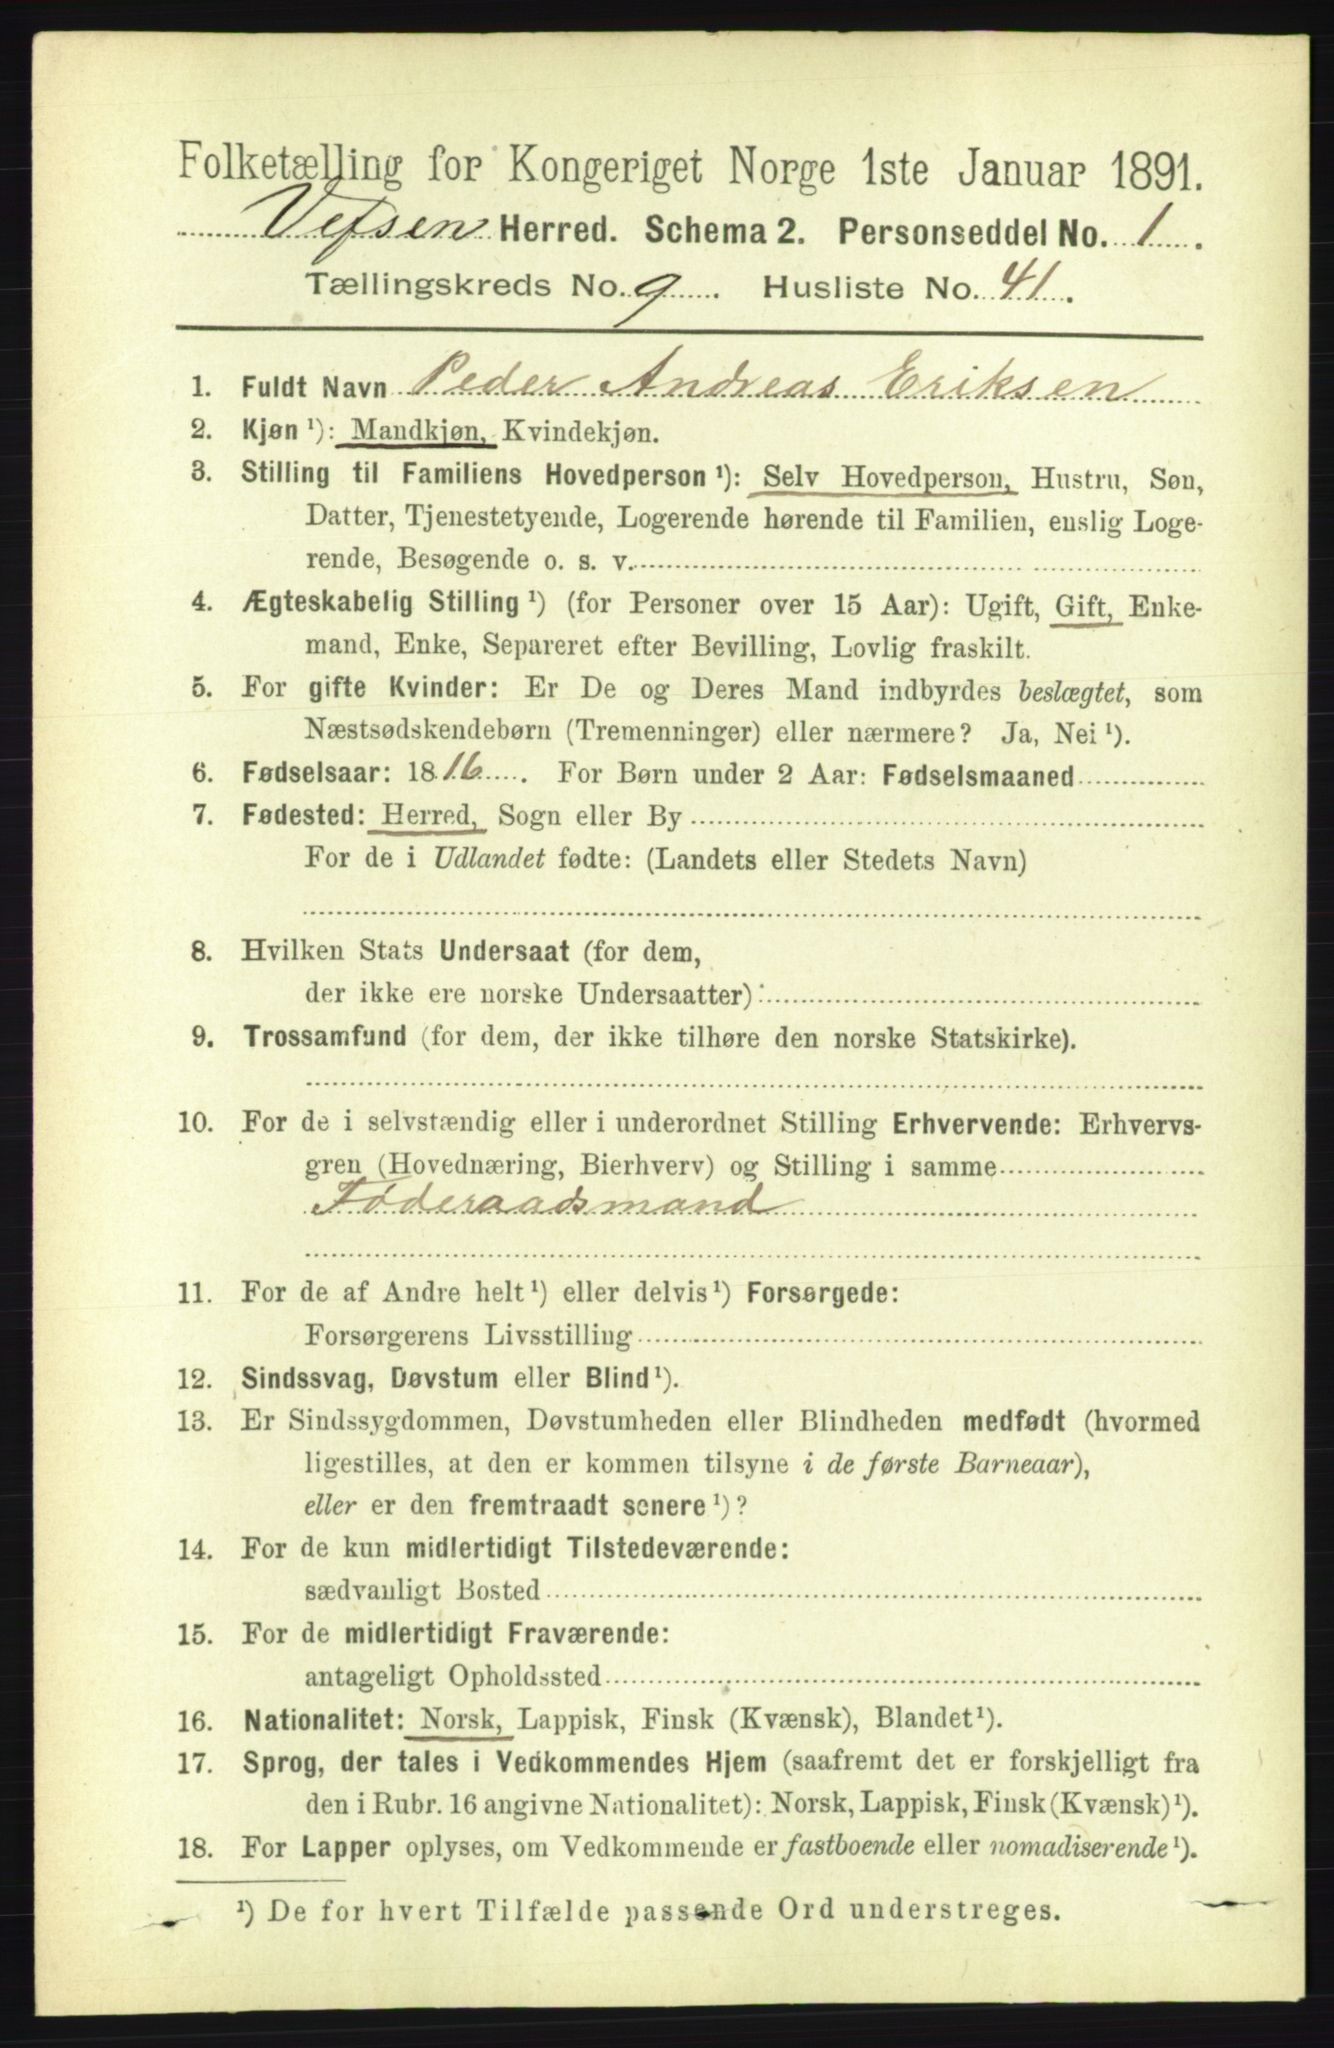 Folketælling for Kongeriget Norge 1ste Januar 1891.
Vefsen Herred. Schema 2. Personseddel No. 1.
Tællingskreds No. 9. Husliste No. 41.
1. Fuldt Navn Peder Andreas Eriksen
2. Kjøn ¹): Mandkjøn, Kvindekjøn.
3. Stilling til Familiens Hovedperson ¹): Selv Hovedperson, Hustru, Søn,
Datter, Tjenestetyende, Logerende hørende til Familien, enslig Loge-
rende, Besøgende o. s. v.
4. Ægteskabelig Stilling ¹) (for Personer over 15 Aar): Ugift, Gift, Enke-
mand, Enke, Separeret efter Bevilling, Lovlig fraskilt.
5. For gifte Kvinder: Er De og Deres Mand indbyrdes beslægtet, som
Næstsødskendebørn (Tremenninger) eller nærmere? Ja, Nei ¹).
6. Fødselsaar: 1816. For Børn under 2 Aar: Fødselsmaaned
7. Fødested: Herred, Sogn eller By
For de i Udlandet fødte: (Landets eller Stedets Navn)
8. Hvilken Stats Undersaat (for dem,
der ikke ere norske Undersaatter):
9. Trossamfund (for dem, der ikke tilhøre den norske Statskirke).
10. For de i selvstændig eller i underordnet Stilling Erhvervende: Erhvervs-
gren (Hovednæring, Bierhverv) og Stilling i samme
Føderaadsmand
11. For de af Andre helt ¹) eller delvis ¹) Forsørgede:
Forsørgerens Livsstilling
12. Sindssvag, Døvstum eller Blind ¹).
13. Er Sindssygdommen, Døvstumheden eller Blindheden medfødt (hvormed
ligestilles, at den er kommen tilsyne i de første Barneaar),
eller er den fremtraadt senere ¹)?
14. For de kun midlertidigt Tilstedeværende:
sædvanligt Bosted
15. For de midlertidigt Fraværende:
antageligt Opholdssted
16. Nationalitet: Norsk, Lappisk, Finsk (Kvænsk), Blandet ¹).
17. Sprog, der tales i Vedkommendes Hjem (saafremt det er forskjelligt fra
den i Rubr. 16 angivne Nationalitet): Norsk, Lappisk, Finsk (Kvænsk) ¹).
18. For Lapper oplyses, om Vedkommende er fastboende eller nomadiserende ¹).
¹) De for hvert Tilfælde passende Ord understreges.